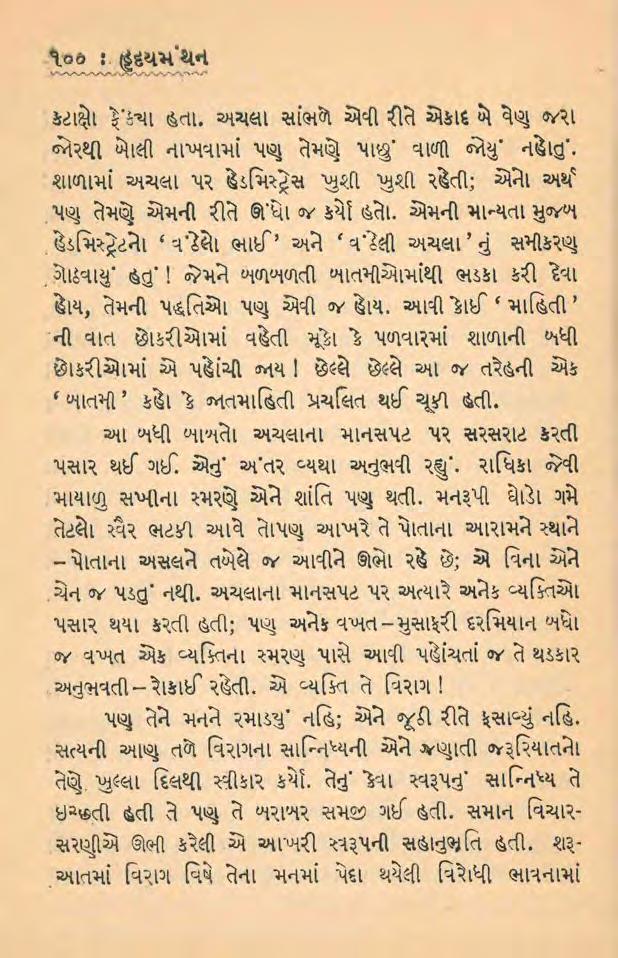 ૧૦૦ : હૃદયમંથન
કટાક્ષો ફેંક્યા હતા. અચલા સાંભળે એવી રીતે એકાદ બે વેણ જરા
જોરથી બોલી નાખવામાં પણ તેમણે પાછું વાળી જોયું નહોતું.
શાળામાં અચલા પર હેડમિસ્ટ્રેસ ખુશી ખુશી રહેતી; એનો અર્થ
પણ તેમણે એમની રીતે ઊંધો જ કર્યો હતો. એમની માન્યતા મુજબ
હેડમિસ્ટ્રેટનો ‘ વંઠેલો ભાઈ ’ અને ‘ વંઠેલી અચલા ’ નું સમીકરણ
ગોઠવાયું હતું ! જેમને બળબળતી બાતમીઓમાંથી ભડકા કરી દેવા
હોય, તેમની પદ્ધતિઓ પણ એવી જ હોય. આવી કોઈ ‘ માહિતી ’
ની વાત છોકરીઓમાં વહેતી મૂકો કે પળવારમાં શાળાની બધી
છોકરીઓમાં એ પહોંચી જાય ! છેલ્લે છેલ્લે આ જ તરેહની એક
‘ બાતમી ’ કહો કે જાતમાહિતી પ્રચલિત થઈ ચૂકી હતી.
આ બધી બાબતો અચલાના માનસપટ પર સરસરાટ કરતી
પસાર થઈ ગઈ. એનું અંતર વ્યથા અનુભવી રહ્યું. રાધિકા જેવી
માયાળુ સખીના સ્મરણે એને શાંતિ પણ થતી. મનરૂપી ઘોડો ગમે
તેટલો સ્વૈર ભટકી આવે તોપણ આખરે તે પોતાના આરામને સ્થાને
– પોતાના અસલને તબેલે જ આવીને ઊભો રહે છે; એ વિના એને
ચેન જ પડતું નથી. અચલાના માનસપટ પર અત્યારે અનેક વ્યક્તિઓ
પસાર થયા કરતી હતી; પણ અનેક વખત – મુસાફરી દરમિયાન બધો
જ વખત એક વ્યક્તિના સ્મરણ પાસે આવી પહોંચતાં જ તે થડકાર
અનુભવતી – રોકાઈ રહેતી. એ વ્યક્તિ તે વિરાગ !
પણ તેને મનને રમાડ્યું નહિ; એને જૂઠી રીતે ફસાવ્યું નહિ.
સત્યની આણ તળે વિરાગના સાન્નિધ્યની એને જણાતી જરૂરિયાતનો
તેણે ખુલ્લા દિલથી સ્વીકાર કર્યો. તેનું કેવા સ્વરૂપનું સાન્નિધ્ય તે
ઇચ્છતી હતી તે પણ તે બરાબર સમજી ગઈ હતી. સમાન વિચાર-
સરણીએ ઊભી કરેલી એ આખરી સ્વરૂપની સહાનુભૂતિ હતી. શરૂ-
આતમાં વિરાગ વિષે તેના મનમાં પેદા થયેલી વિરોધી ભાવનામાં